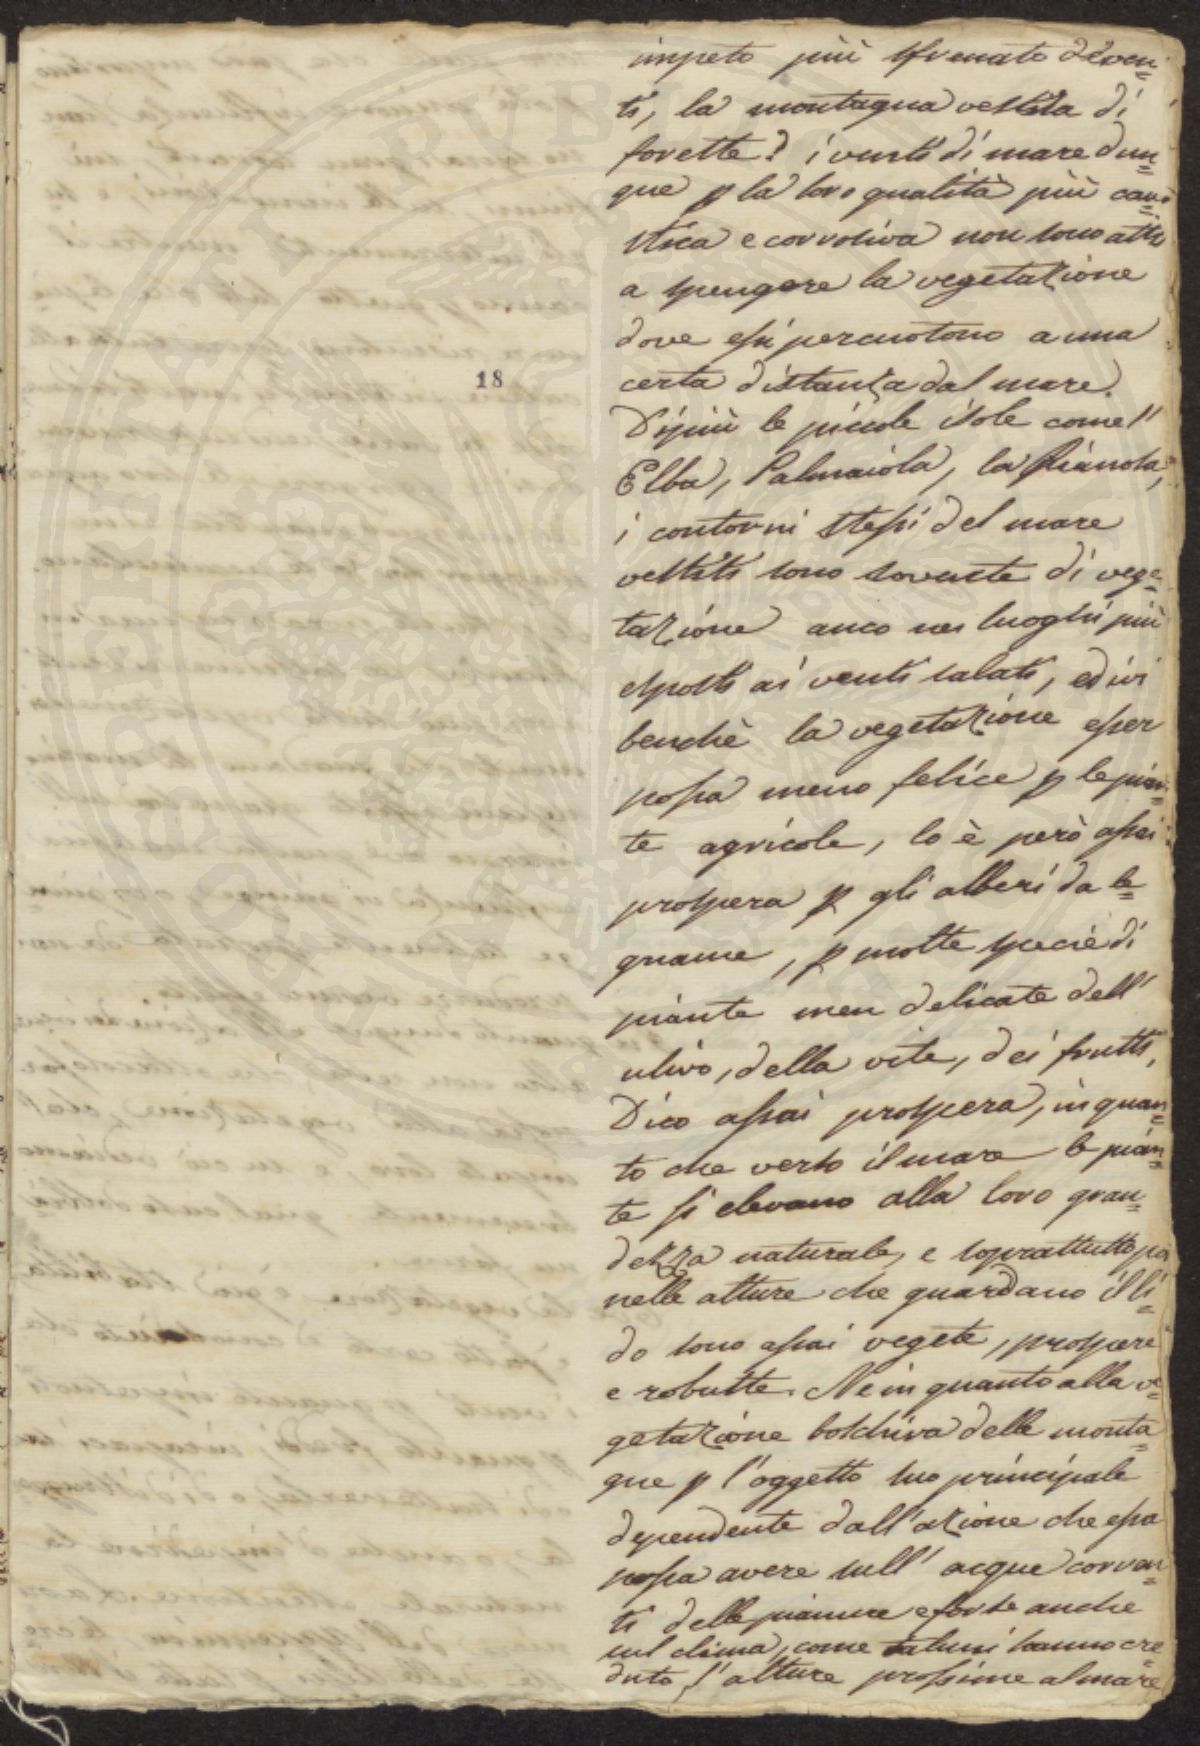 impeto più sfrenato de' ven=
ti, la montagna vestita di
forette? i venti di mare dun=
que p la loro qualità più cau=
stica e corrosiva non sono atti
a spengere la vegetazione
dove essi percuotono a una
certa distanza dal mare.
18
Dipiù le piccole isole come l'
Elba, Palmaiola, la Pianosa,
i contorni stessi del mare
vestiti sono sovente di vege=
tazione anco nei luoghi più
esposti ai venti salati, ed ivi
benchè la vegetazione esser
possa meno felice p le pian=
te agricole, lo è però assai
prospera p gli alberi da le=
gname, p molte specie di
piante men delicate dell'
ulivo, della vite, dei frutti,
Dico assai prospera, in quan=
to che verso il mare le pian=
te si elevano alla loro gran=
dezza naturale, e soprattutto
nelle alture che guardano il li=
do sono assai vegete, prospere
e robuste. Ne in quanto alla ve=
getazione boschiva delle monta=
gne p l'oggetto suo principale
dependente dall'azione che essa
possa avere sull' acque corren=
ti delle pianure e forse anche
sul clima, come taluni hanno cre
duto l'alture prossime al mare